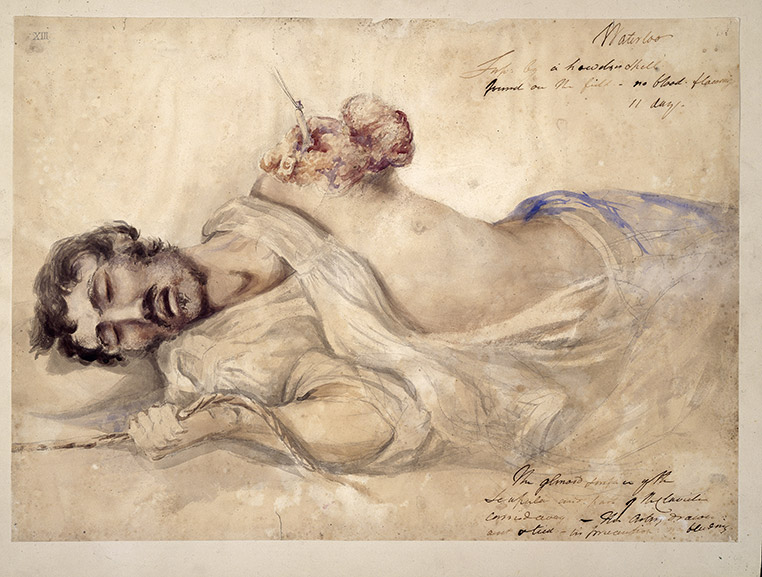 XIII
Waterloo
by a howitzer shell
found on the field - no blood flowing
11 days -
The glenoid surface of the
Scapula and part of the Clavicle
carried away - The artery drawn
and tied - in precaution bleeding